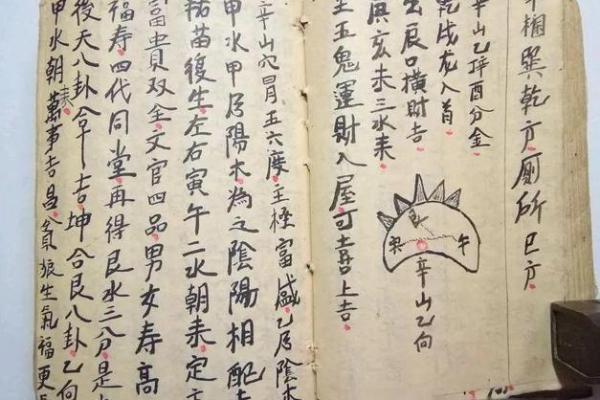 巽乾方厕所巳方
辛山乙坪酉分金
乾戌龙入首
辰口横财吉
亥未三水来
生五鬼運財入屋可喜上吉
癸 艮 午
辛山乙向
辛山穴冒五六度主極富盛乙乃陰木
甲水甲乃陽木為之陰陽相配
祐苗復生左右寅午二水朝来定
富貴双全文官四品男女寿高
福寿四代同堂再得艮水三分是
後天八卦合羊吉坤合艮八卦乙向
甲水朝来萬事吉昌貪狼生氣福更